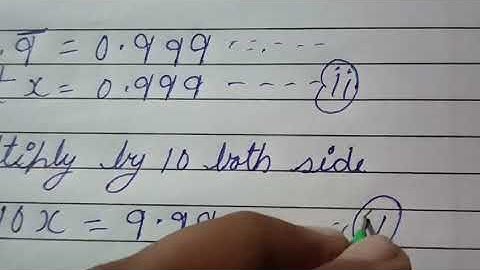 .9̅ = 0.999 ......
x = 0.999 ---- (ii)
tiply by 10 both side
10x = 9.99